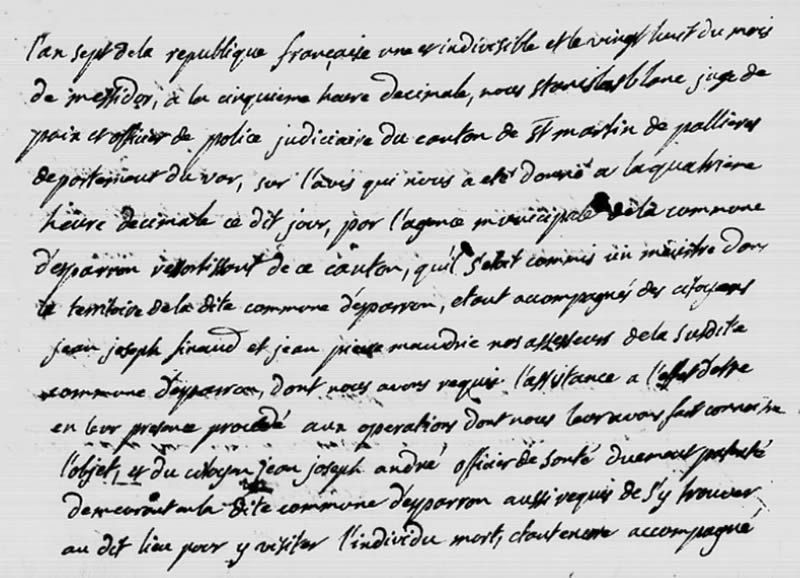 l'an sept de la republique française une et indivisible et le vingt huit du mois
de messidor, a la cinquieme heure decimale, nous stanislas blanc juge de
paix et officier de police judiciaire du canton de St martin de pallieres
departement du var, sur l'avis qui nous a eté donné a la quatrieme
heure decimale ce dit jour, par l'agence municipale de la commune
d'esparron ressortissant de ce canton, qu'il s'etoit commis un meurtre dans
le territoire de la dite commune d'esparron, etant accompagnés des citoyens
jean joseph sinaud et jean pierre maudric nos assesseurs de la susdite
commune d'esparron, dont nous avons requis l'assistance a l'effet d'etre
en leur presence procedé aux operations dont nous leur avons fait connoitre
l'objet, et du citoyen jean joseph andré officier de santé duement patenté
demeurant en la dite commune d'esparron aussi requis de s'y trouver
au dit lieu pour y visiter l'individu mort, etant encore accompagné